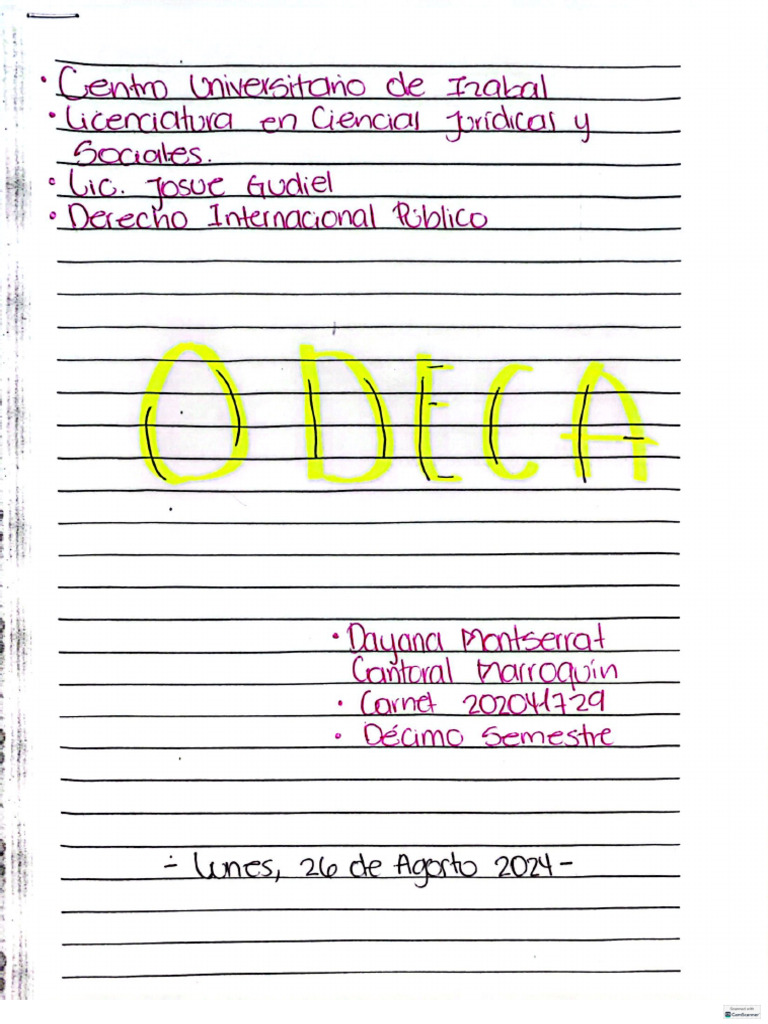 • Centro Universitario de Izabal
• Licenciatura en Ciencias Jurídicas y
Sociales.
• Lic. Josue Gudiel
• Derecho Internacional Público
ODECA
• Dayana Montserrat
Cantoral Marroquín
• Carnet 202041729
• Décimo Semestre
- Lunes, 26 de Agosto 2024 -
Scanned with
CamScanner